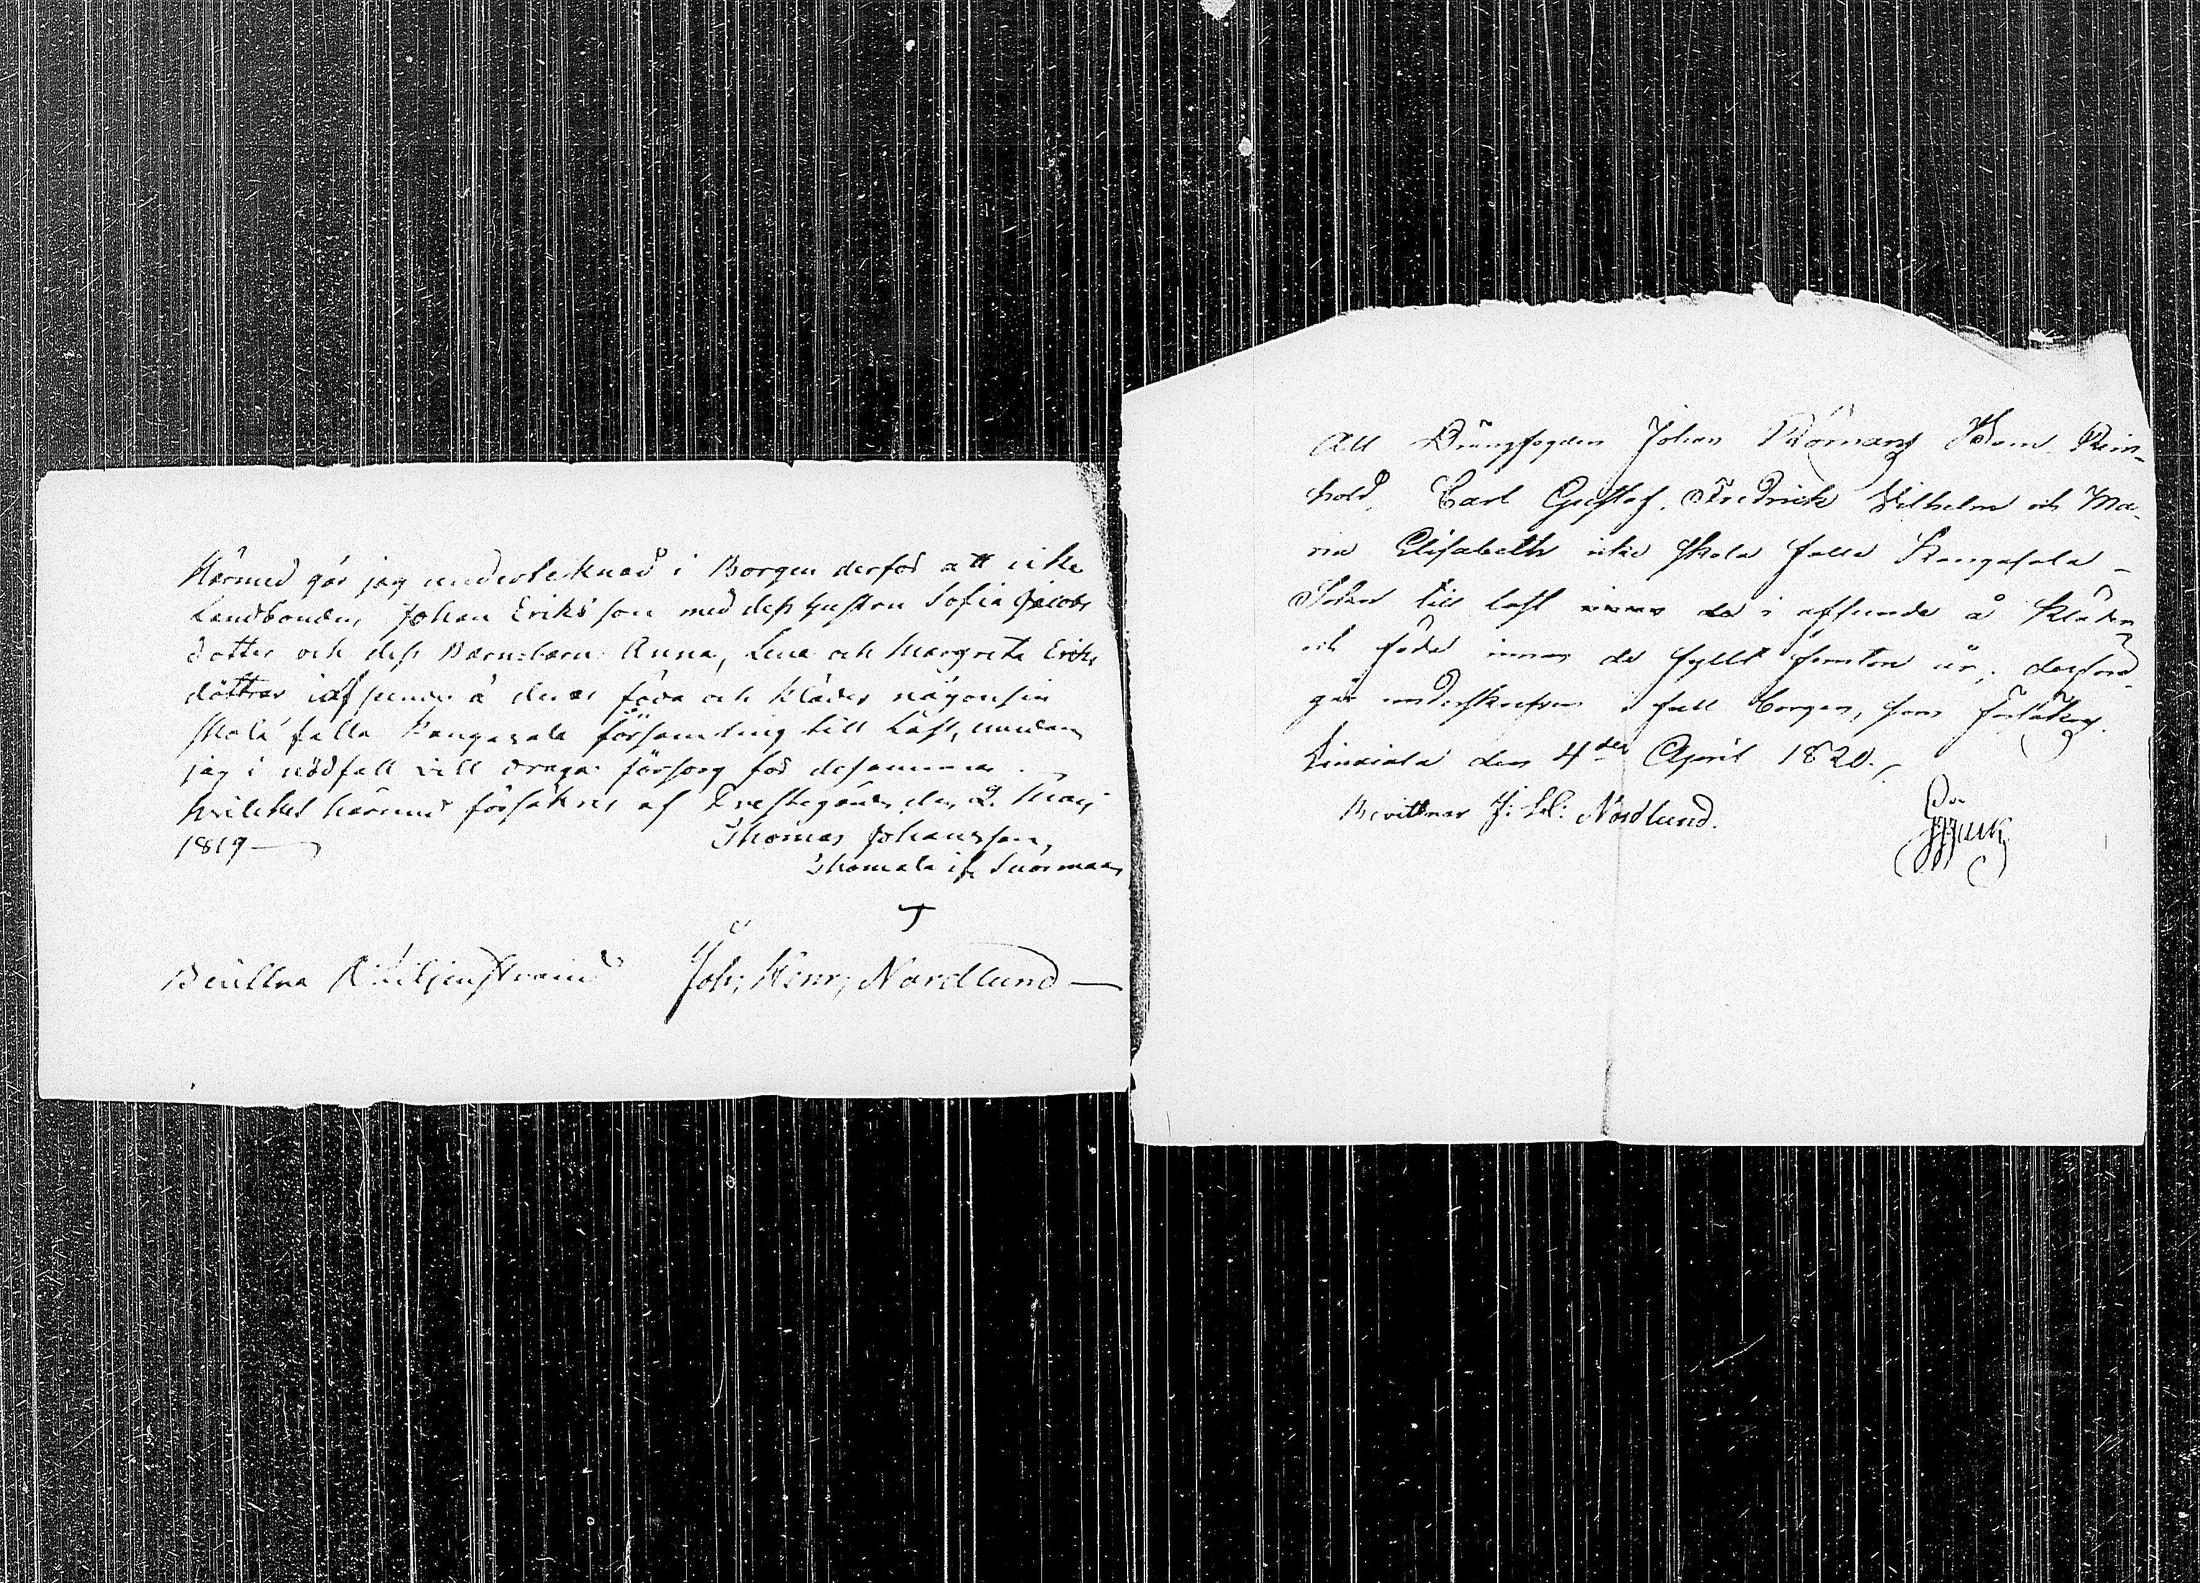 Härmed går jag undertecknad i Borgen derför att icke
Landbonden, Johan Eriksson med dess hustru Sofia Jacobs
dotter och dess Barnebarn Anna, Lena och Margreta Eriks
döttrar i afseende å deras föda och kläder någonsin
skola falla Kangasala församling till Last, utan
jag i nödfall vill draga försorg för desamma
hvilket härmed försäkras af Prestegården den 2. Maij
1819
Thomas Johansson,
Thomala if. Suormaa
Bevittna Liljenstrand Joh; Henr; Nordlund
Att Drängfogden Johan Römans Barn Rein-
hold, Carl Gustaf, Fredrick Vilhelm och Ma-
ria Elisabeth icke skola falla Kangasala
Soken till last i afseende å kläder
och föda innan de fyllt femton år, derföre
går underskrefven i full borgen, som försäkras.
Liuxiala den 4de April 1820.
Bevittnar J: H: Nordlund.